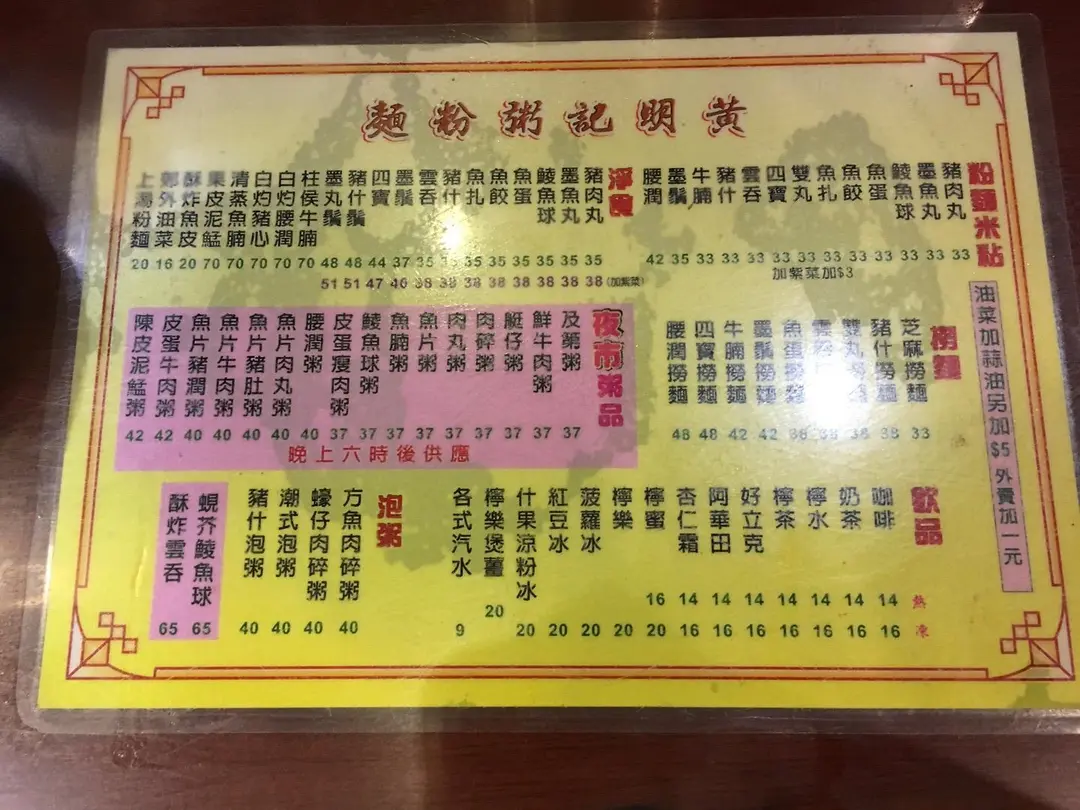 黃明記粥粉麵
粉麵米點
豬肉丸 33
墨魚丸 33
鯪魚球 33
魚蛋 33
魚餃 33
魚扎 33
雙丸 33
四寶 33
雲吞 33
豬什 33
牛腩 33
墨鬚 35
腰潤 42
加紫菜加$3
淨食
豬肉丸 35 38
墨魚丸 35 38
鯪魚球 35 38
魚蛋 35 38
魚餃 35 38
魚扎 35 38
豬什 35 38
雲吞 35 38
墨鬚 37 40
四寶 44 47
豬什鬚 48 51
墨丸鬚 48 51
(加紫菜)
柱侯牛腩 70
白灼腰潤 70
白灼豬心 70
清蒸魚腩 70
果皮泥鯭 70
酥炸魚皮 20
郊外油菜 16
上湯粉麵 20
油菜加蒜油另加$5 外賣加一元
撈麵
芝麻撈麵 33
豬什撈麵 38
雙丸撈麵 38
魚蛋撈麵
墨鬚撈麵 42
牛腩撈麵 42
四寶撈麵 48
腰潤撈麵 48
夜市粥品
及第粥 37
鮮牛肉粥 37
艇仔粥 37
肉碎粥 37
肉丸粥 37
魚片粥 37
魚腩粥 37
鯪魚球粥 37
皮蛋瘦肉粥 37
腰潤粥 40
魚片肉丸粥 40
魚片豬肚粥 40
魚片牛肉粥 40
魚片豬潤粥 40
皮蛋牛肉粥 42
陳皮泥鯭粥 42
晚上六時後供應
飲品
熱 凍
咖啡 14 16
奶茶 14 16
檸水 14 16
檸茶 14 16
好立克 14 16
阿華田 14 16
杏仁霜 14 16
檸蜜 16 20
檸樂 20
菠蘿冰 20
紅豆冰 20
什果涼粉冰 20
檸樂煲薑 20
各式汽水 9
泡粥
方魚肉碎粥 40
蠔仔肉碎粥 40
潮式泡粥 40
豬什泡粥 40
蜆芥鯪魚球 65
酥炸雲吞 65